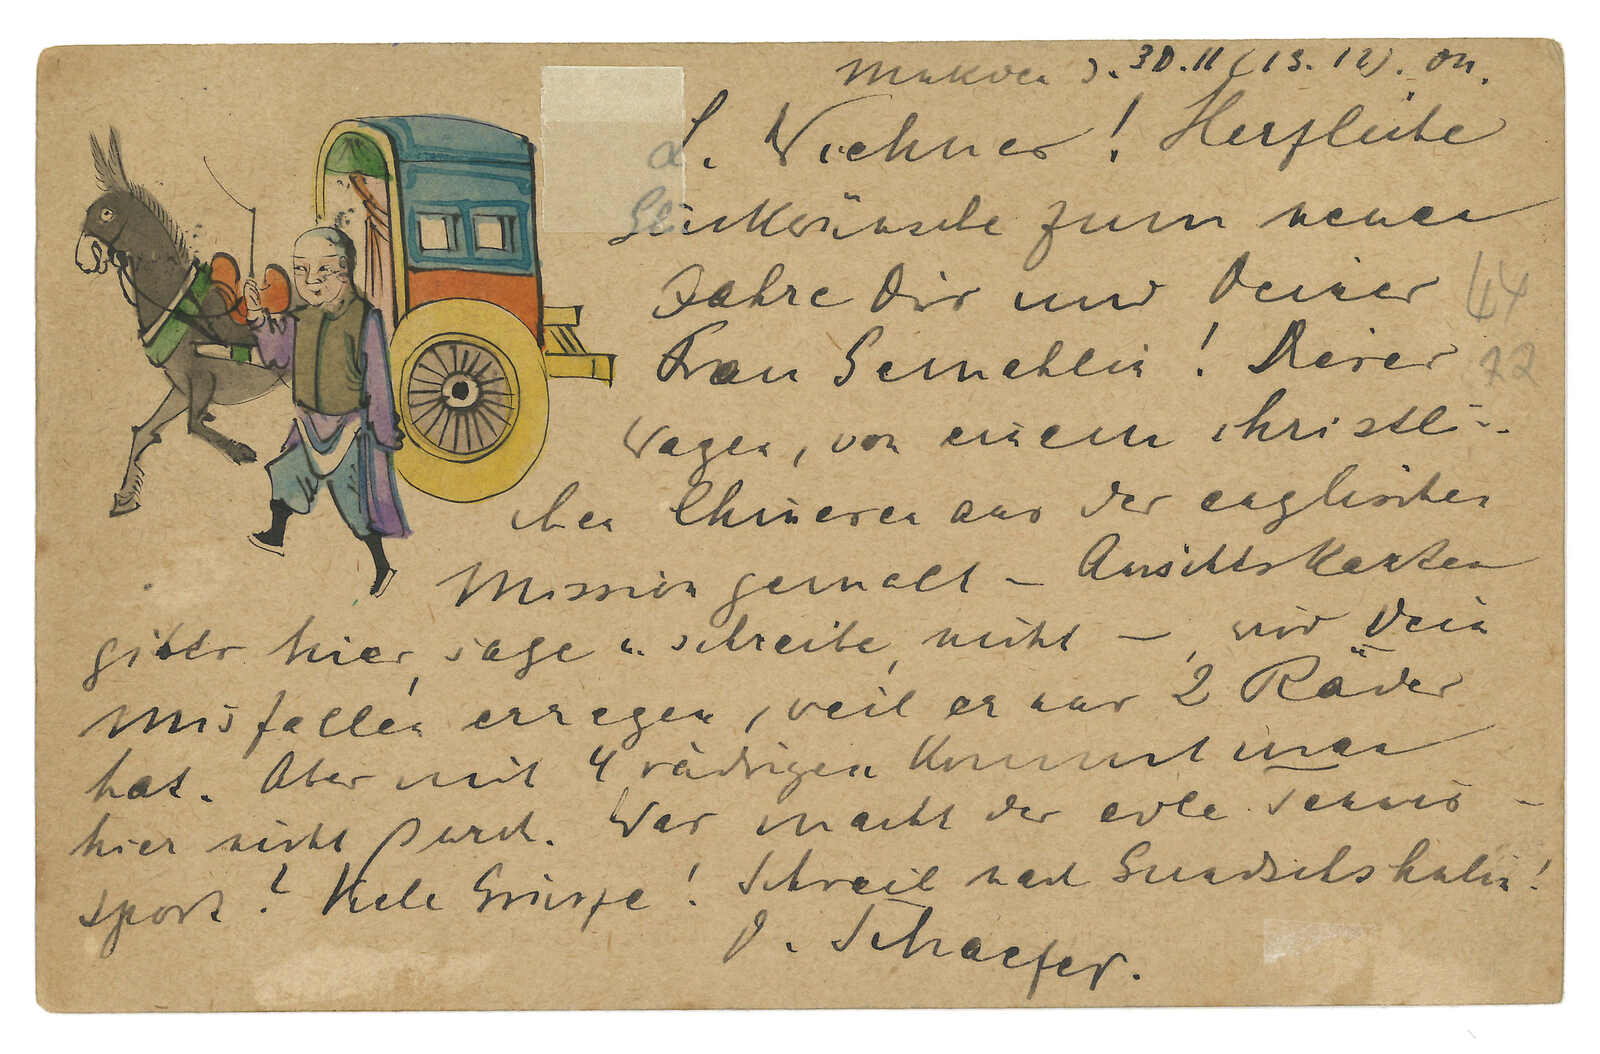 Mukden d. 30.11 (13.12). 04.
L. Wiehner! Herzliche
Glückwünsche zum neuen
Jahre Dir und Deiner
44
Frau Gemahlin! Dieser
22
Wagen, von einem christli-
chen Chinesen aus der englischen
Mission gemalt – Ansichtskarten
gibts hier, sage u. schreibe, nicht –, wird Dein
Misfallen erregen, weil er nur 2 Räder
hat. Aber mit 4 rädrigen kommt man
hier nicht durch. Was macht der edle Tennis-
sport? Viele Grüsse! Schreib nach Gundschulin!
O. Schaefer.